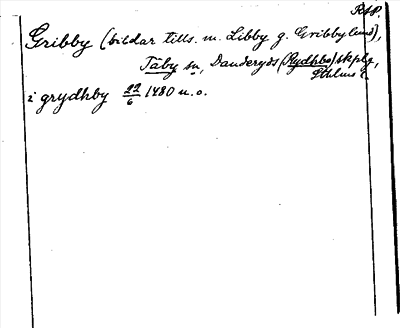 RAP.
Gribby (bildar tills. m. Libby g. Gribbylund),
Täby sn, Danderyds (Rydhbo) skplg,
Sthlms l.
i grydhby 22/6 1480 u. o.